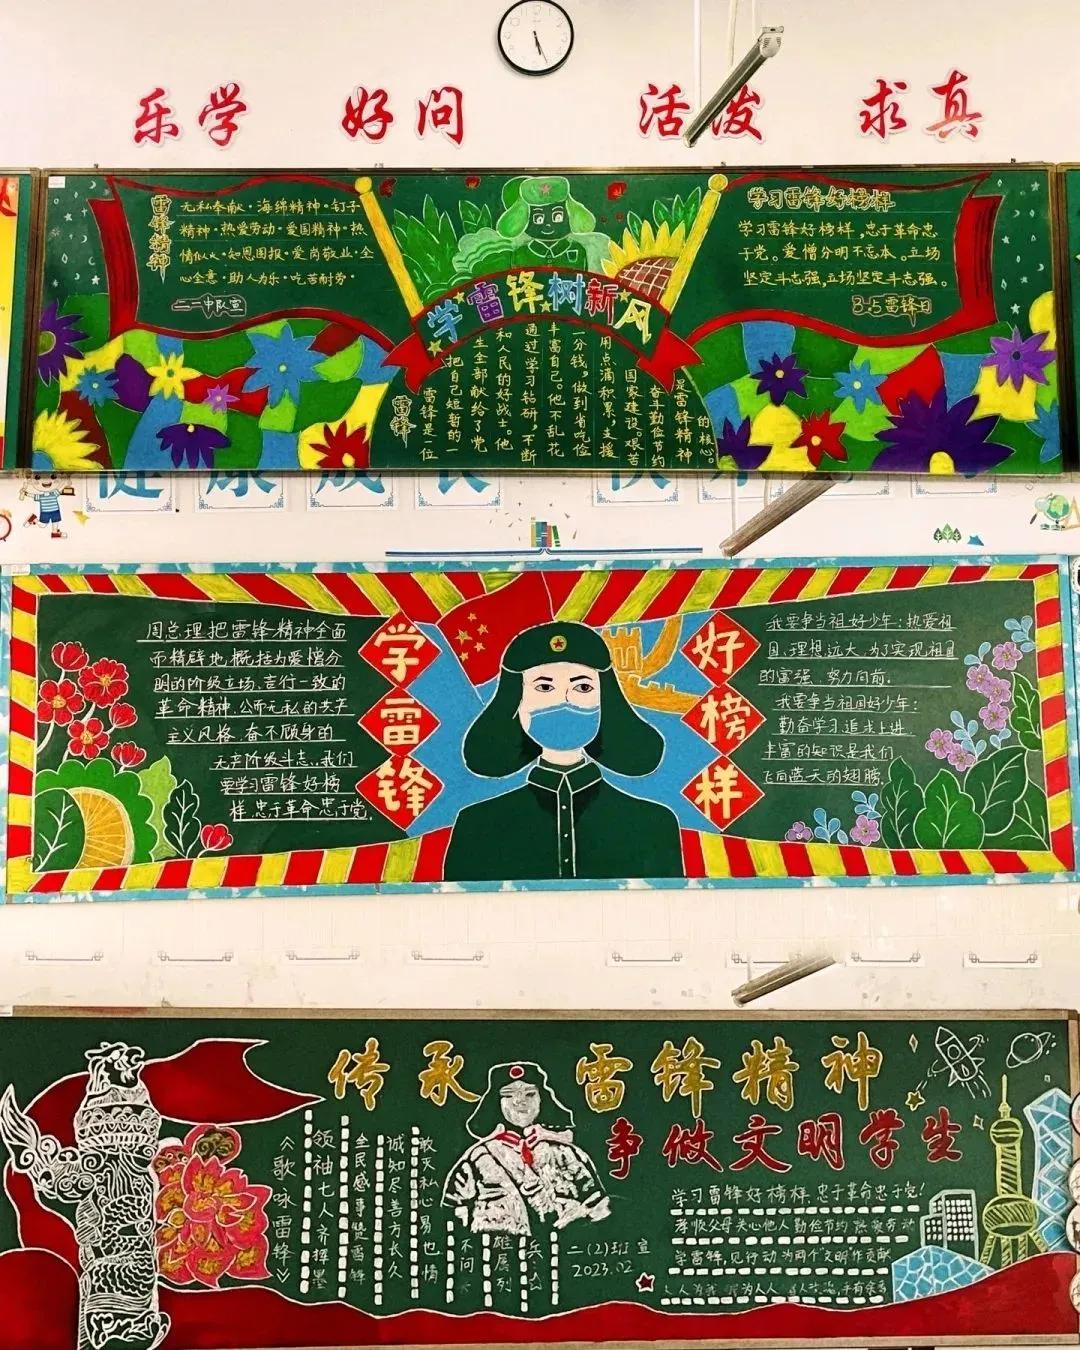 乐学 好问 活泼 求真
雷锋精神
无私奉献·海绵精神·钉子
精神·热爱劳动·爱国精神·热
情似火·知恩图报·爱岗敬业·全
心全意·助人为乐·吃苦耐劳·
二一中队宣
学雷锋树新风
学习雷锋好榜样
学习雷锋好榜样,忠于革命忠
于党。爱憎分明不忘本。立场
坚定斗志强,立场坚定斗志强。
3·5雷锋日
雷锋
雷锋是一位
把自己短暂的一
生全部献给了党
和人民的好战士。他
通过学习钻研,不断
丰富自己。他不乱花
一分钱,做到省吃俭
用点滴积累,支援
国家建设。艰苦
奋斗勤俭节约
是雷锋精神
的核心。
健康成长 快
学雷锋
好榜样
周总理把雷锋精神全面
而精辟地概括为爱憎分
明的阶级立场、言行一致的
革命精神、公而无私的共产
主义风格、奋不顾身的
无产阶级斗志..我们
要学习雷锋好榜
样,忠于革命忠于党.
我要争当祖好少年:热爱祖
国、理想远大、为了实现祖国
的富强、努力向前.
我要争当祖国好少年:
勤奋学习追求上进
丰富的知识是我们
飞向蓝天的翅膀
传承雷锋精神
争做文明学生
《歌咏雷锋》
领袖七人齐挥墨
全民感事赞雷锋
诚知尽善方长久
敢灭私心易也情
不问
雄属列
兵
二(2)班宣
2023.02
学习雷锋好榜样、忠于革命忠于党!
孝顺父母关心他人勤俭节约热爱劳动
学雷锋,见行动为两个"文明"作贡献
人人为我 我为人人 手有余香